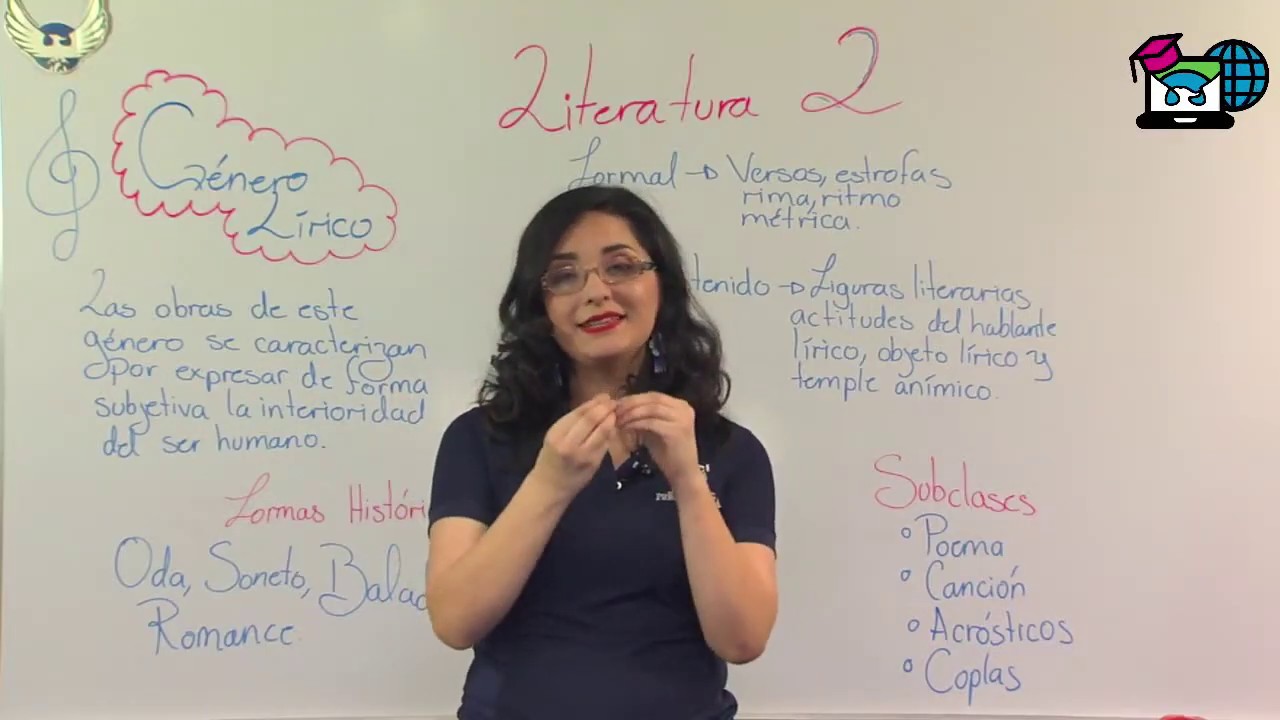 Literatura 2
Género
Lírico
Formal → Versos, estrofas
rima, ritmo
métrica.
tenido → Figuras literarias
actitudes del hablante
lírico, objeto lírico y
temple anímico.
Las obras de este
género se caracterizan
por expresar de forma
subjetiva la interioridad
del ser humano.
Formas Históri
Oda, Soneto, Balad
Romance.
Subclases
° Poema
° Canción
° Acrósticos
° Coplas